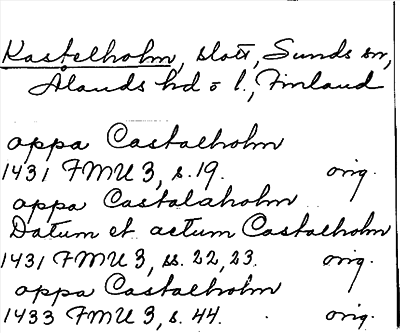 Kastelholm, slott, Sunds sn,
Ålands hd o l., Finland
oppa Castaeholm
1431 FMU 3, s. 19. orig.
oppa Castalaholm
Datum et actum Castaeholm
1431 FMU 3, ss. 22, 23. orig.
oppa Castaeholm
1433 FMU 3, s. 44. orig.